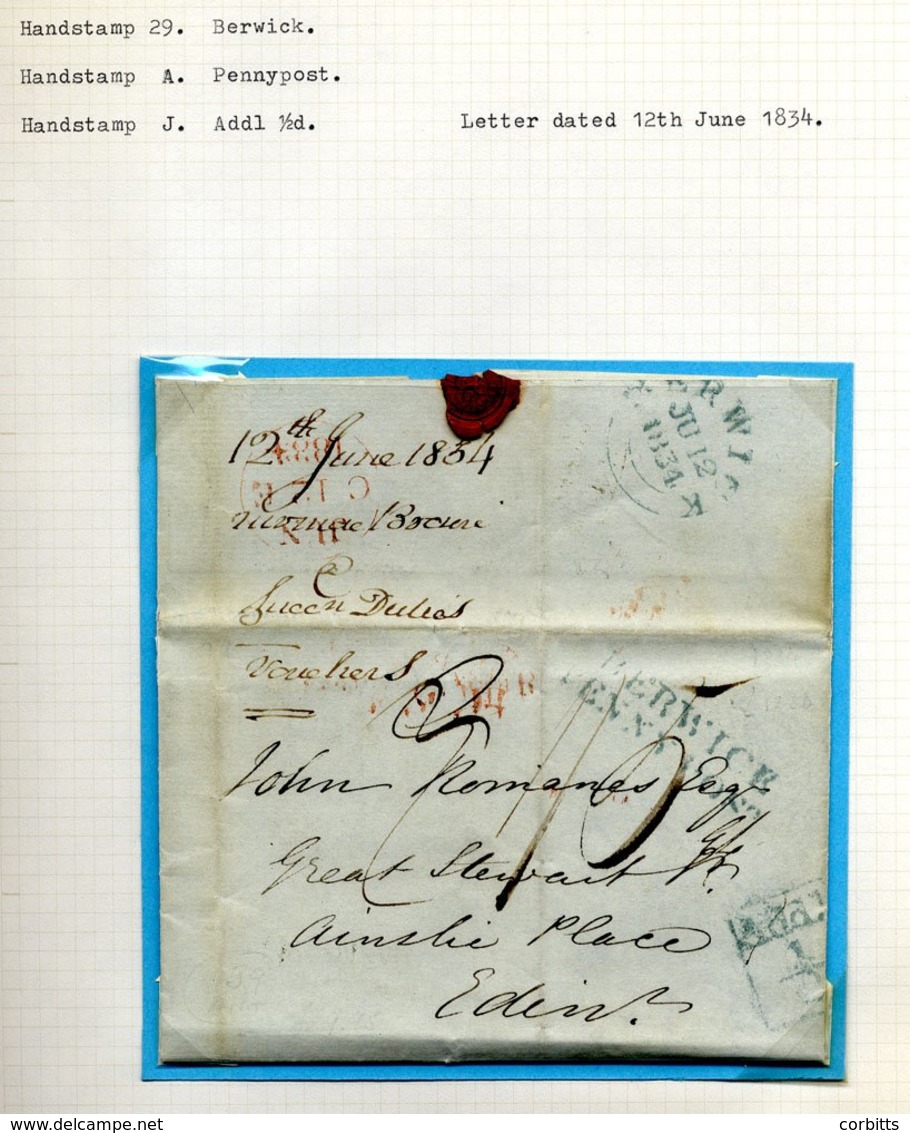 Handstamp 29. Berwick.
Handstamp A. Pennypost.
Handstamp J. Addl ½d.
Letter dated 12th June 1834.
ERWIC
JU 12
1834
K
12th June 1834
1834
Vouchers
BERWICK
PENNY POST
John Romanes Esqr
Great Stewart St.
Ainslie Place
Edinr.
Addl.
½
delcampe.net
corbitts